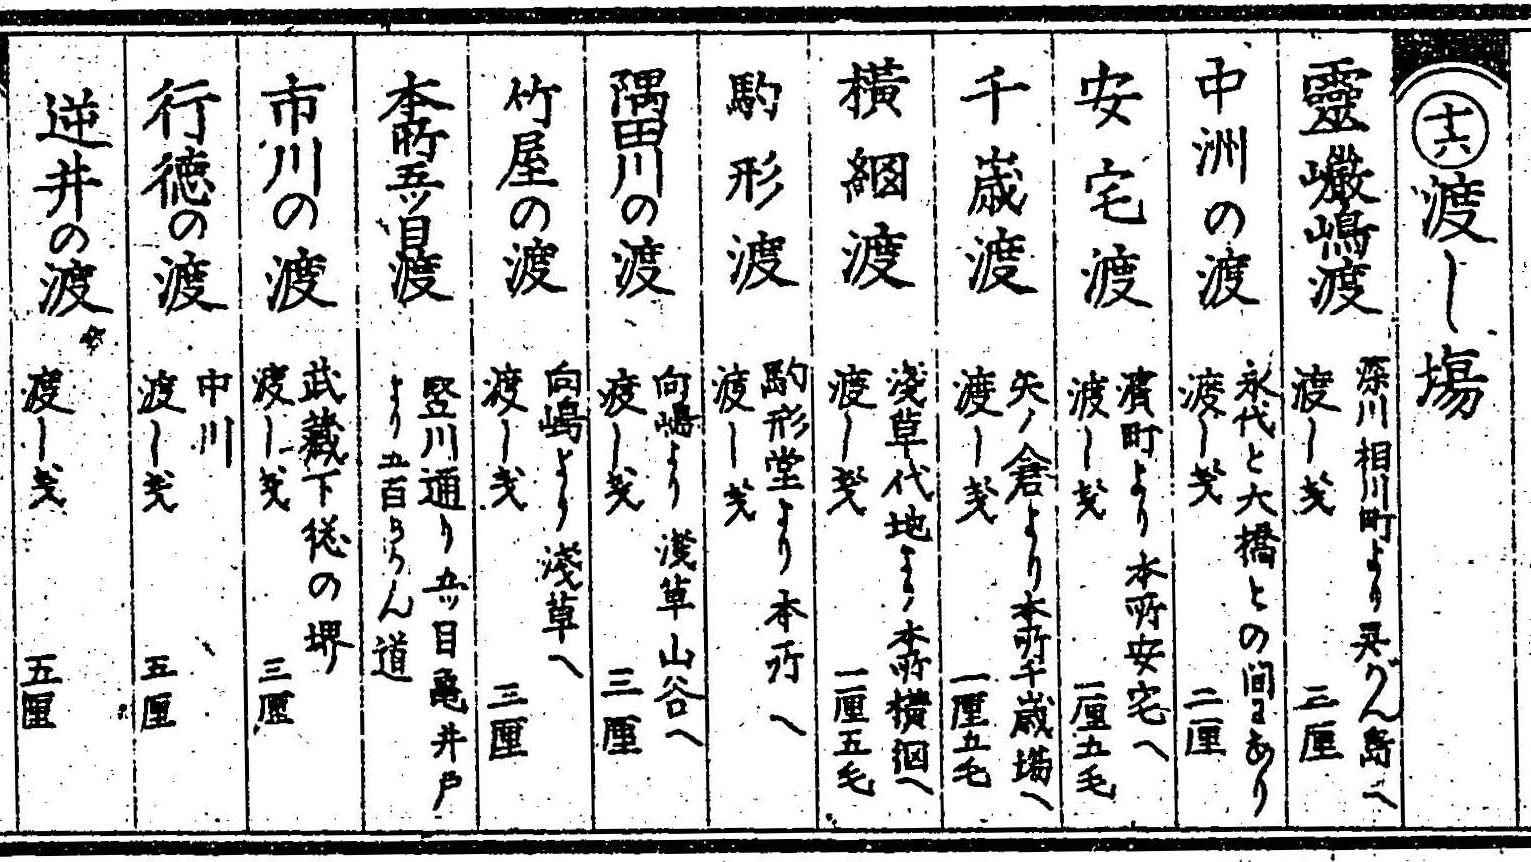 十六 渡し塲
靈巖嶋渡
深川相川町より灵がん島へ
渡し戔 三厘
中洲の渡
永代と大橋との間にあり
渡し戔 二厘
安宅渡
濱町より本所安宅へ
渡し戔 二厘五毛
千歳渡
矢ノ倉より本所千歳塲へ
渡し戔 一厘五毛
横綱渡
淺草代地より本所横網へ
渡し戔 二厘五毛
駒形渡
駒形堂より本所へ
渡し戔
隅田川の渡
向嶋より淺草山谷へ
渡し戔 三厘
竹屋の渡
向嶋より淺草へ
渡し戔 三厘
本所五ッ目渡
竪川通り五ッ目亀井戸
より五百らかん道
市川の渡
武藏下総の堺
渡し戔 三厘
行徳の渡
中川
渡し戔 五厘
逆井の渡
渡し戔 五厘